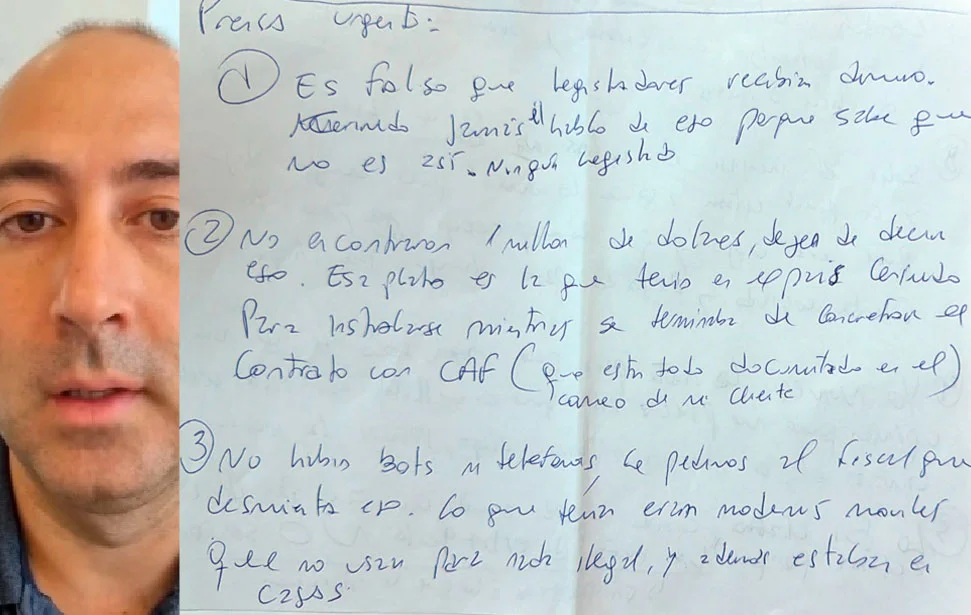 Prensa urgente:
① Es falso que legisladores recibían dinero.
Jamás el habló de eso porque sabe que
no es así. Ningún legislad
② No encontraron 1 millon de dolares, dejen de decir
eso. Esa plata es la que tenia en el pais
Para instalarse mientras se terminaba de concretar el
Contrato con CAF (que esta todo documentado en el)
correo de mi cliente
③ No habia bots ni telefonos, le pedimos al fiscal que
desmienta eso. Lo que tenia eran modems moviles
que no usan para nada ilegal, y además estaban en
cajas.